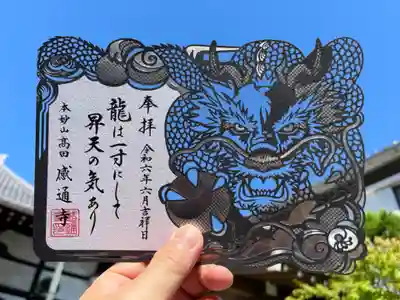 奉拝
令和六年六月吉祥日
龍は一寸にして
昇天の気あり
本妙山高田 感通寺